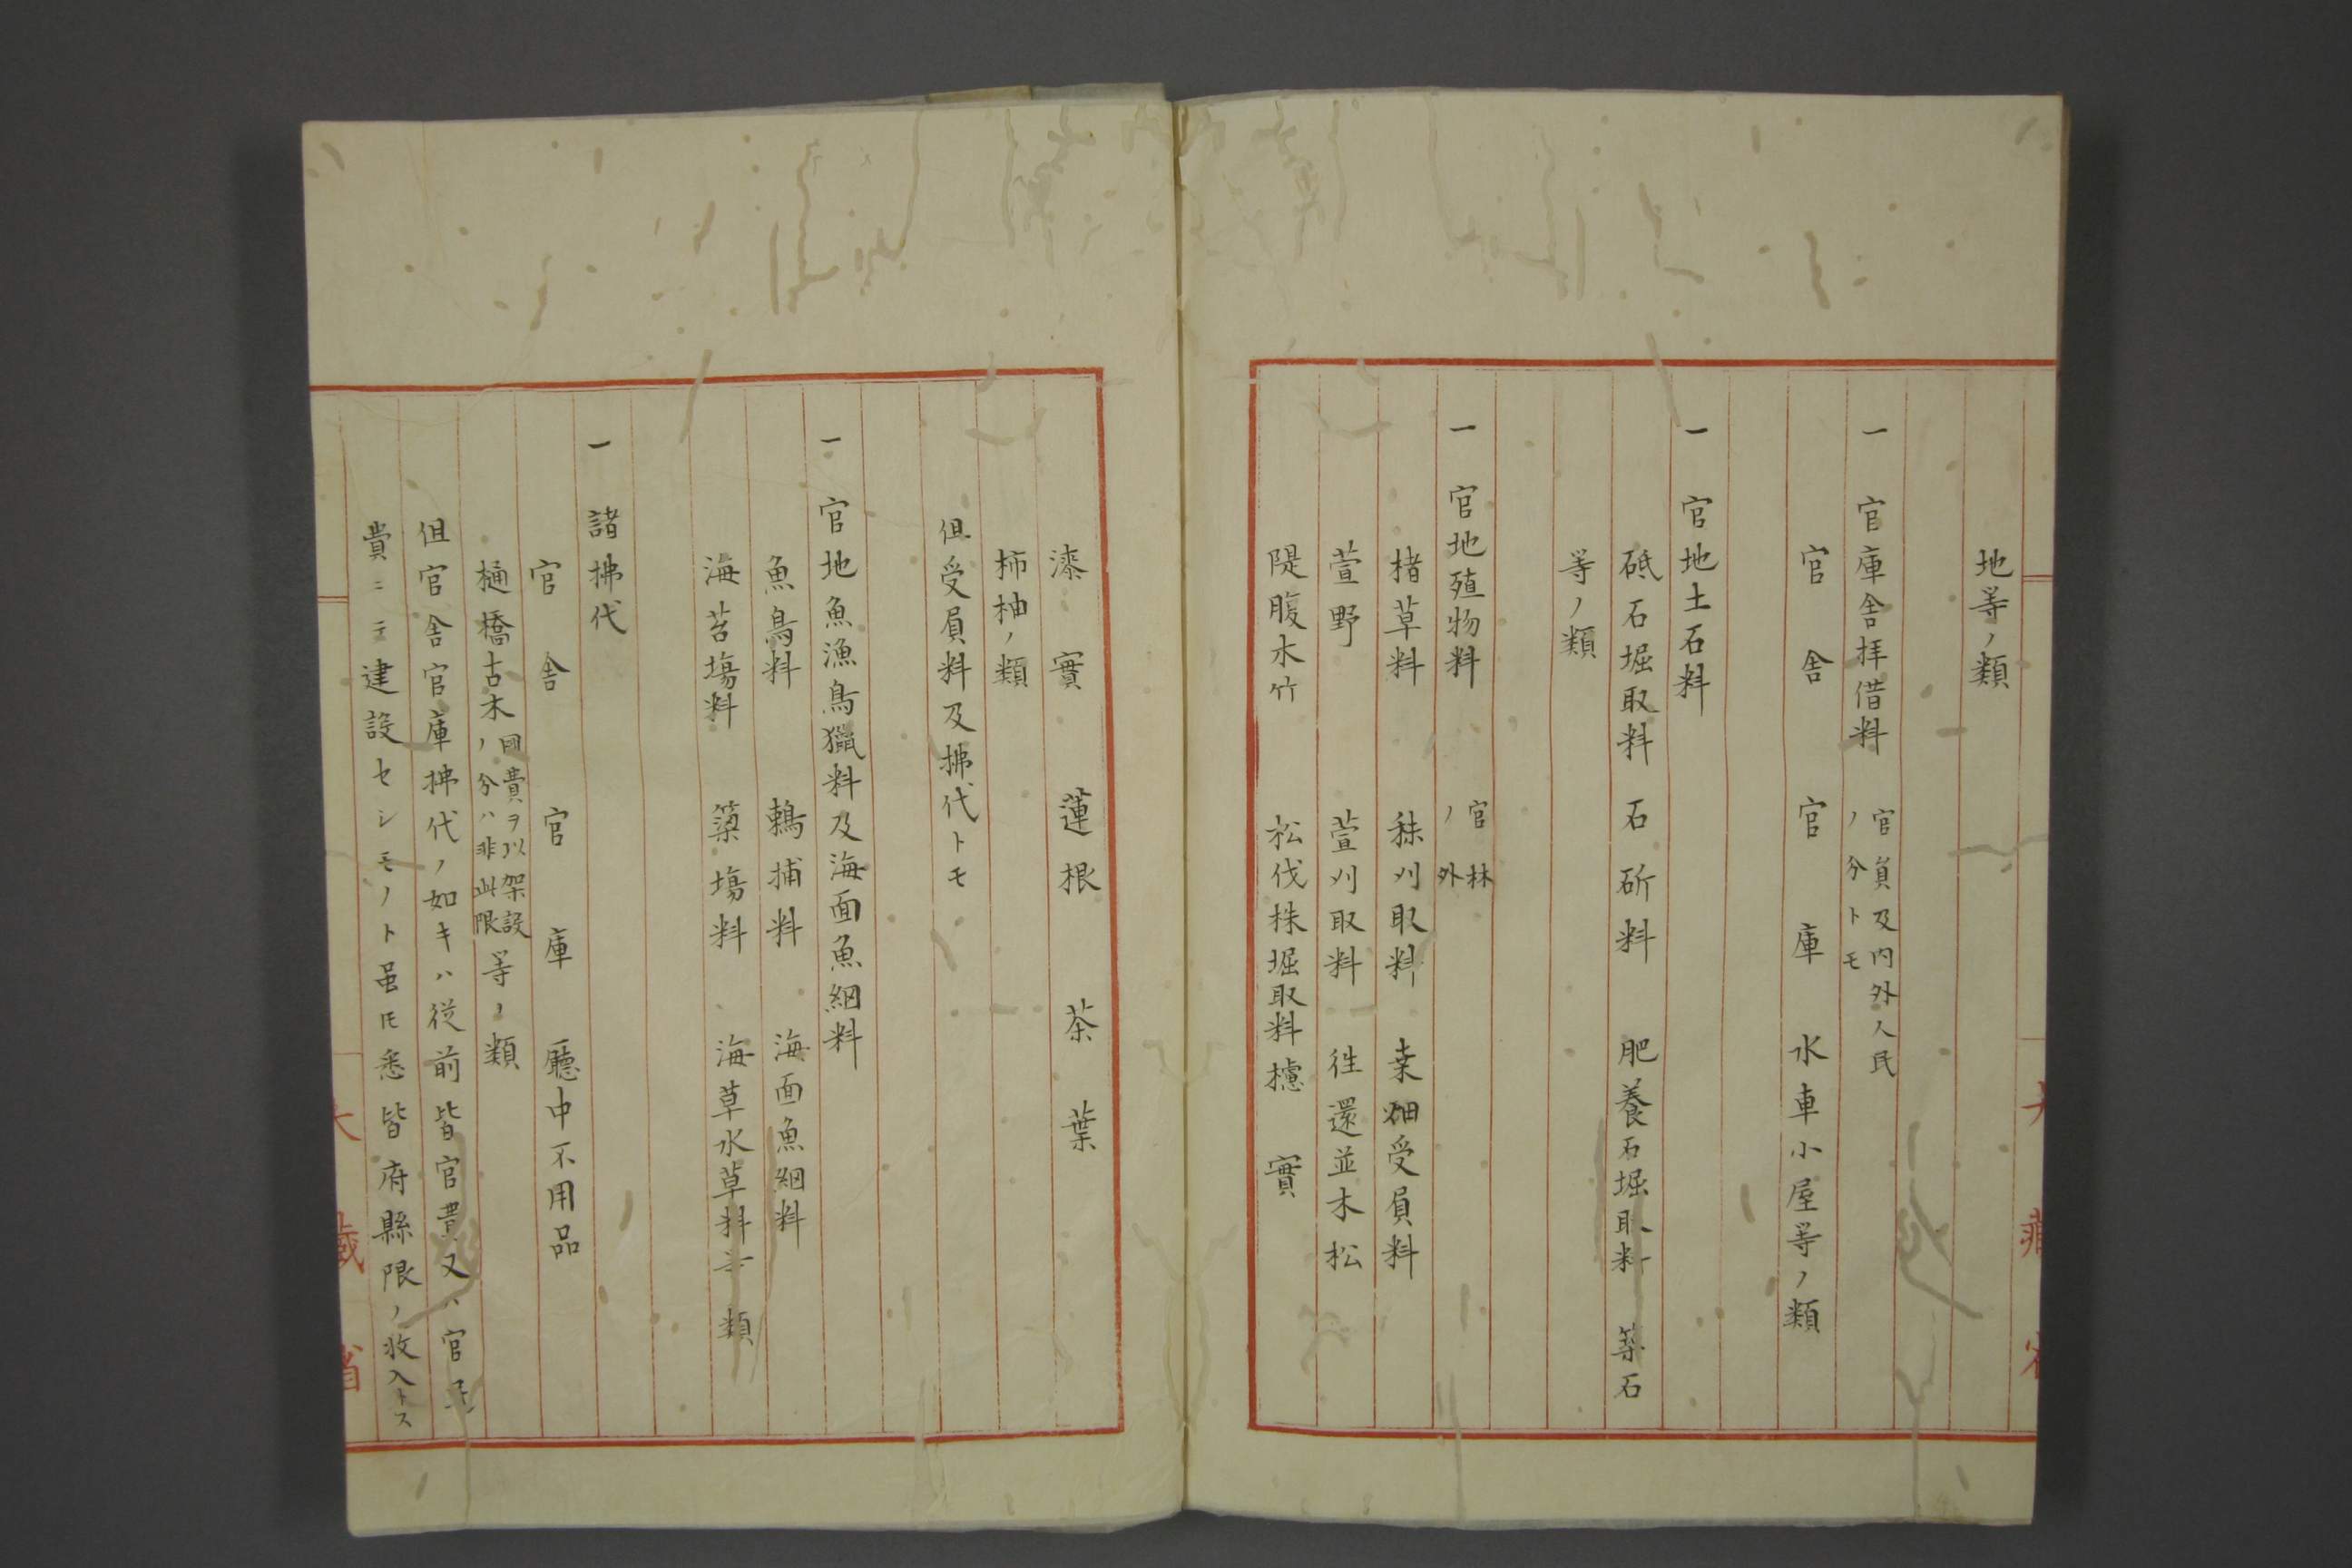 地等ノ類
一 官庫舎拝借料 官負及内外人民
ノ分トモ
官舎 官庫 水車小屋等ノ類
一 官地土石料
砥石堀取料 石斫料 肥養石堀取料 築石
等ノ類
一 官地殖物料 官林
ノ外
楮草料 秣刈取料 桒畑受負料
萱野 萱刈取料 徃還並木松
隄腹木竹 松伐株堀取料 櫨實
漆實 蓮根 茶葉
柿柚ノ類
但受負料及拂代トモ
一 官地魚漁鳥獵料及海面魚網料
魚鳥料 鶫捕料 海面魚網料
海苔塲料 簗塲料 海草水草料等ノ類
一 諸拂代
官舎 官庫 廳中不用品
樋橋古木 國費ヲ以架設
ノ分ハ非此限 等ノ類
但官舎官庫拂代ノ如キハ従前皆官費又ハ官民
費ニテ建設セシモノト虽𪜈悉皆府縣限ノ收入トス
大藏省
大藏省